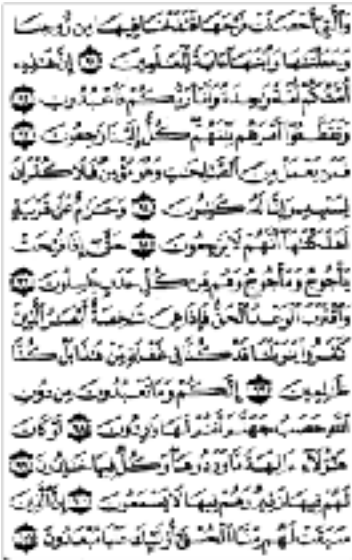 وَالَّتِي أَحْصَنَتْ فَرْجَهَا فَنَفَخْنَا فِيهَا مِن رُّوحِنَا
وَجَعَلْنَاهَا وَابْنَهَا آيَةً لِّلْعَالَمِينَ ٩١ إِنَّ هَذِهِ
أُمَّتُكُمْ أُمَّةً وَاحِدَةً وَأَنَا رَبُّكُمْ فَاعْبُدُونِ ٩٢
وَتَقَطَّعُوا أَمْرَهُم بَيْنَهُمْ كُلٌّ إِلَيْنَا رَاجِعُونَ ٩٣
فَمَن يَعْمَلْ مِنَ الصَّالِحَاتِ وَهُوَ مُؤْمِنٌ فَلَا كُفْرَانَ
لِسَعْيِهِ وَإِنَّا لَهُ كَاتِبُونَ ٩٤ وَحَرَامٌ عَلَى قَرْيَةٍ
أَهْلَكْنَاهَا أَنَّهُمْ لَا يَرْجِعُونَ ٩٥ حَتَّى إِذَا فُتِحَتْ
يَأْجُوجُ وَمَأْجُوجُ وَهُم مِّن كُلِّ حَدَبٍ يَنسِلُونَ ٩٦
وَاقْتَرَبَ الْوَعْدُ الْحَقُّ فَإِذَا هِيَ شَاخِصَةٌ أَبْصَارُ الَّذِينَ
كَفَرُوا يَا وَيْلَنَا قَدْ كُنَّا فِي غَفْلَةٍ مِّنْ هَذَا بَلْ كُنَّا
ظَالِمِينَ ٩٧ إِنَّكُمْ وَمَا تَعْبُدُونَ مِن دُونِ
اللَّهِ حَصَبُ جَهَنَّمَ أَنتُمْ لَهَا وَارِدُونَ ٩٨ لَوْ كَانَ
هَؤُلَاءِ آلِهَةً مَّا وَرَدُوهَا وَكُلٌّ فِيهَا خَالِدُونَ ٩٩
لَهُمْ فِيهَا زَفِيرٌ وَهُمْ فِيهَا لَا يَسْمَعُونَ ١٠٠ إِنَّ الَّذِينَ
سَبَقَتْ لَهُم مِّنَّا الْحُسْنَى أُولَئِكَ عَنْهَا مُبْعَدُونَ ١٠١